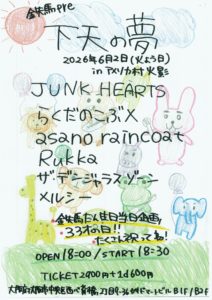 鉄馬pre
下天の夢
2026年6月2日(火ようび)
in アメリカ村火影
JUNK HEARTS
らくだのこぶX
asano raincoat
Rukka
ザ・デンジャラスゾーン
メルシー
鉄馬たん生日当日企画
33才の日!!
たくさん祝ってね!
OPEN 18:00 / START 18:30
TICKET 2900円+1d600円
大阪府大阪市中央区西心斎橋2丁目9-36 ビル B1F/B2F